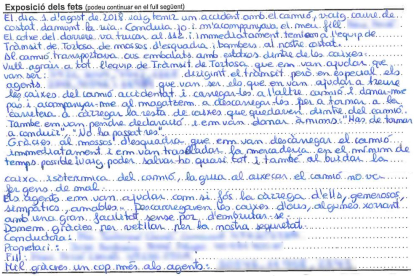 Exposició dels fets (podeu continuar en el full següent)
El dia 1 d'agost de 2018 vaig tenir un accident amb el camió, vaig caure de
costat damunt la via. Conduïa jo i m'acompanyava el meu fill
El cotxe del darrere va trucar al 112 i immediatament teníem a l'equip de
Trànsit de Tortosa de mossos d'esquadra i bombers al nostre costat.
El camió transportava ous embalats amb estoigs dintre de les caixes.
Vull agrair a tot l'equip de Trànsit de Tortosa que em van ajudar que
van ser: dirigint el trànsit però en especial, els
agents que van ser els que em van ajudar a treure
les caixes del camió accidentat i carregar-les a l'altre camió i donar-me
pas i acompanyar-me al magatzem a descarregar-les per a tornar a la
carretera a carregar la resta de caixes que quedaven dintre del camió.
També em van pendre declaració i em van donar ànims: "Has de tornar
a conduir", "No ha passat res".
Gràcies als mossos d'esquadra que em van descarregar el camió
immediatament i em van traslladar la mercaderia en el mínim de
temps possible, vaig poder salvar-ho quasi tot i també al buidar la
caixa isotèrmica del camió, la grua al aixecar el camió no va
fer gens de mal.
Els agents em van ajudar com si fós la càrrega d'ells, generosos,
simpàtics, amables. Descarregaven les caixes d'ous, algunes xorrant
amb una gran facilitat sense por d'embrutar-se.
Donem gràcies per vetllar per la nostra seguretat.
Conductora:
Propietari:
Fill:
Mil gràcies un cop més als agents: